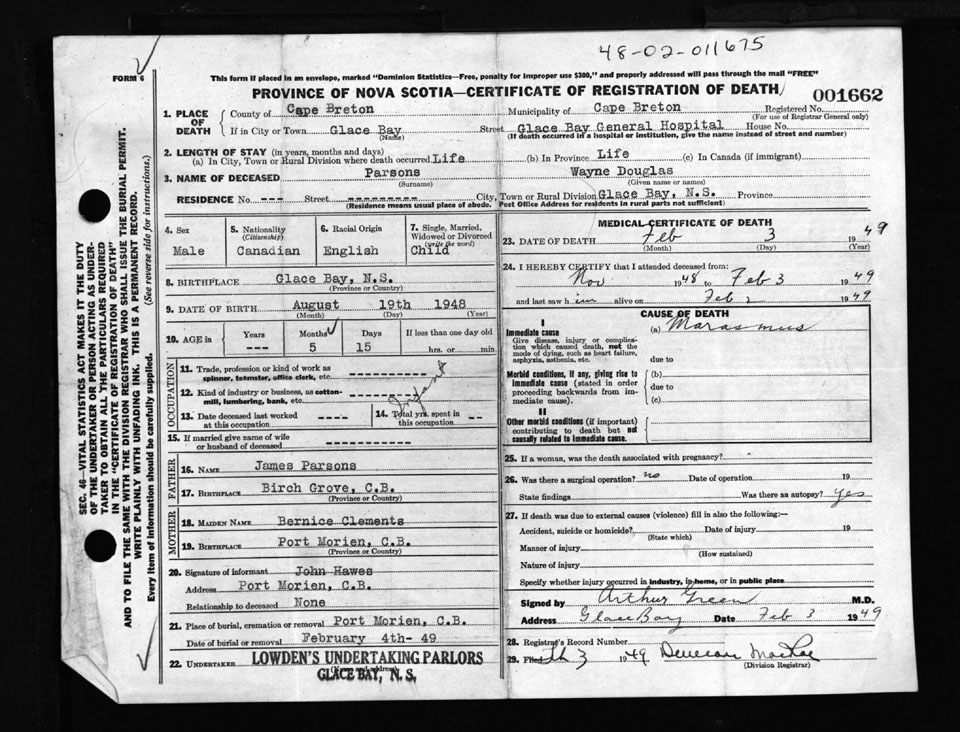 48-02-011675
FORM 6
This form if placed in an envelope, marked "Dominion Statistics—Free, penalty for improper use $300," and properly addressed will pass through the mail "FREE"
PROVINCE OF NOVA SCOTIA—CERTIFICATE OF REGISTRATION OF DEATH
001662
1. PLACE OF DEATH
County of Cape Breton Municipality of Cape Breton Registered No.
(For use of Registrar General only)
If in City or Town Glace Bay Street Glace Bay General Hospital House No.
(Name) (If death occurred in a hospital or institution, give the name instead of street and number)
2. LENGTH OF STAY (in years, months and days)
(a) In City, Town or Rural Division where death occurred Life (b) In Province Life (c) In Canada (if immigrant)
3. NAME OF DECEASED Parsons Wayne Douglas
(Surname) (Given name or names)
RESIDENCE No. --- Street --------- City, Town or Rural Division Glace Bay, N.S. Province
(Residence means usual place of abode. Post Office Address for residents in rural parts not sufficient)
4. Sex
Male
5. Nationality
(Citizenship)
Canadian
6. Racial Origin
English
7. Single, Married, Widowed or Divorced
(write the word)
Child
8. BIRTHPLACE Glace Bay, N.S.
(Province or Country)
9. DATE OF BIRTH August 19th 1948
(Month) (Day) (Year)
10. AGE in Years Months Days If less than one day old
--- 5 15 hrs. or min.
OCCUPATION
11. Trade, profession or kind of work as
spinner, teamster, office clerk, etc.
12. Kind of industry or business, as cotton-
mill, lumbering, bank, etc.
Infant
13. Date deceased last worked
at this occupation
14. Total yrs. spent in
this occupation --
15. If married give name of wife
or husband of deceased
FATHER
16. NAME James Parsons
17. BIRTHPLACE Birch Grove, C.B.
(Province or Country)
MOTHER
18. MAIDEN NAME Bernice Clements
19. BIRTHPLACE Port Morien, C.B.
(Province or Country)
20. Signature of informant John Hawes
Address Port Morien, C.B.
Relationship to deceased None
21. Place of burial, cremation or removal Port Morien, C.B.
Date of burial or removal February 4th- 49
22. UNDERTAKER LOWDEN'S UNDERTAKING PARLORS
GLACE BAY, N. S.
MEDICAL CERTIFICATE OF DEATH
23. DATE OF DEATH Feb 3 1949
(Month) (Day) (Year)
24. I HEREBY CERTIFY that I attended deceased from:
Nov 1948 to Feb 3 1949
and last saw him alive on Feb 2 1949
CAUSE OF DEATH
I
Immediate cause
Give disease, injury or complica-
tion which caused death, not the
mode of dying, such as heart failure,
asphyxia, asthenia, etc.
(a) Marasmus
due to
Morbid conditions, if any, giving rise to
immediate cause (stated in order
proceeding backwards from im-
mediate cause).
(b)
due to
(c)
II
Other morbid conditions (if important)
contributing to death but not
causally related to immediate cause.
25. If a woman, was the death associated with pregnancy?
26. Was there a surgical operation? no Date of operation 19
State findings Was there an autopsy? Yes
27. If death was due to external causes (violence) fill in also the following:—
Accident, suicide or homicide? Date of injury 19
(State which)
Manner of injury
(How sustained)
Nature of injury
Specify whether injury occurred in industry, in home, or in public place
Signed by Arthur Green M.D.
Address Glace Bay Date Feb 3 1949
28. Registrar's Record Number
29. Filed 3 1949
(Division Registrar)
SEC. 46—VITAL STATISTICS ACT MAKES IT THE DUTY
OF THE UNDERTAKER OR PERSON ACTING AS UNDER-
TAKER TO OBTAIN ALL THE PARTICULARS REQUIRED
IN THE "CERTIFICATE OF REGISTRATION OF DEATH"
AND TO FILE THE SAME WITH THE DIVISION REGISTRAR WHO SHALL ISSUE THE BURIAL PERMIT.
WRITE PLAINLY WITH UNFADING INK. THIS IS A PERMANENT RECORD.
Every item of information should be carefully supplied. (See reverse side for instructions.)